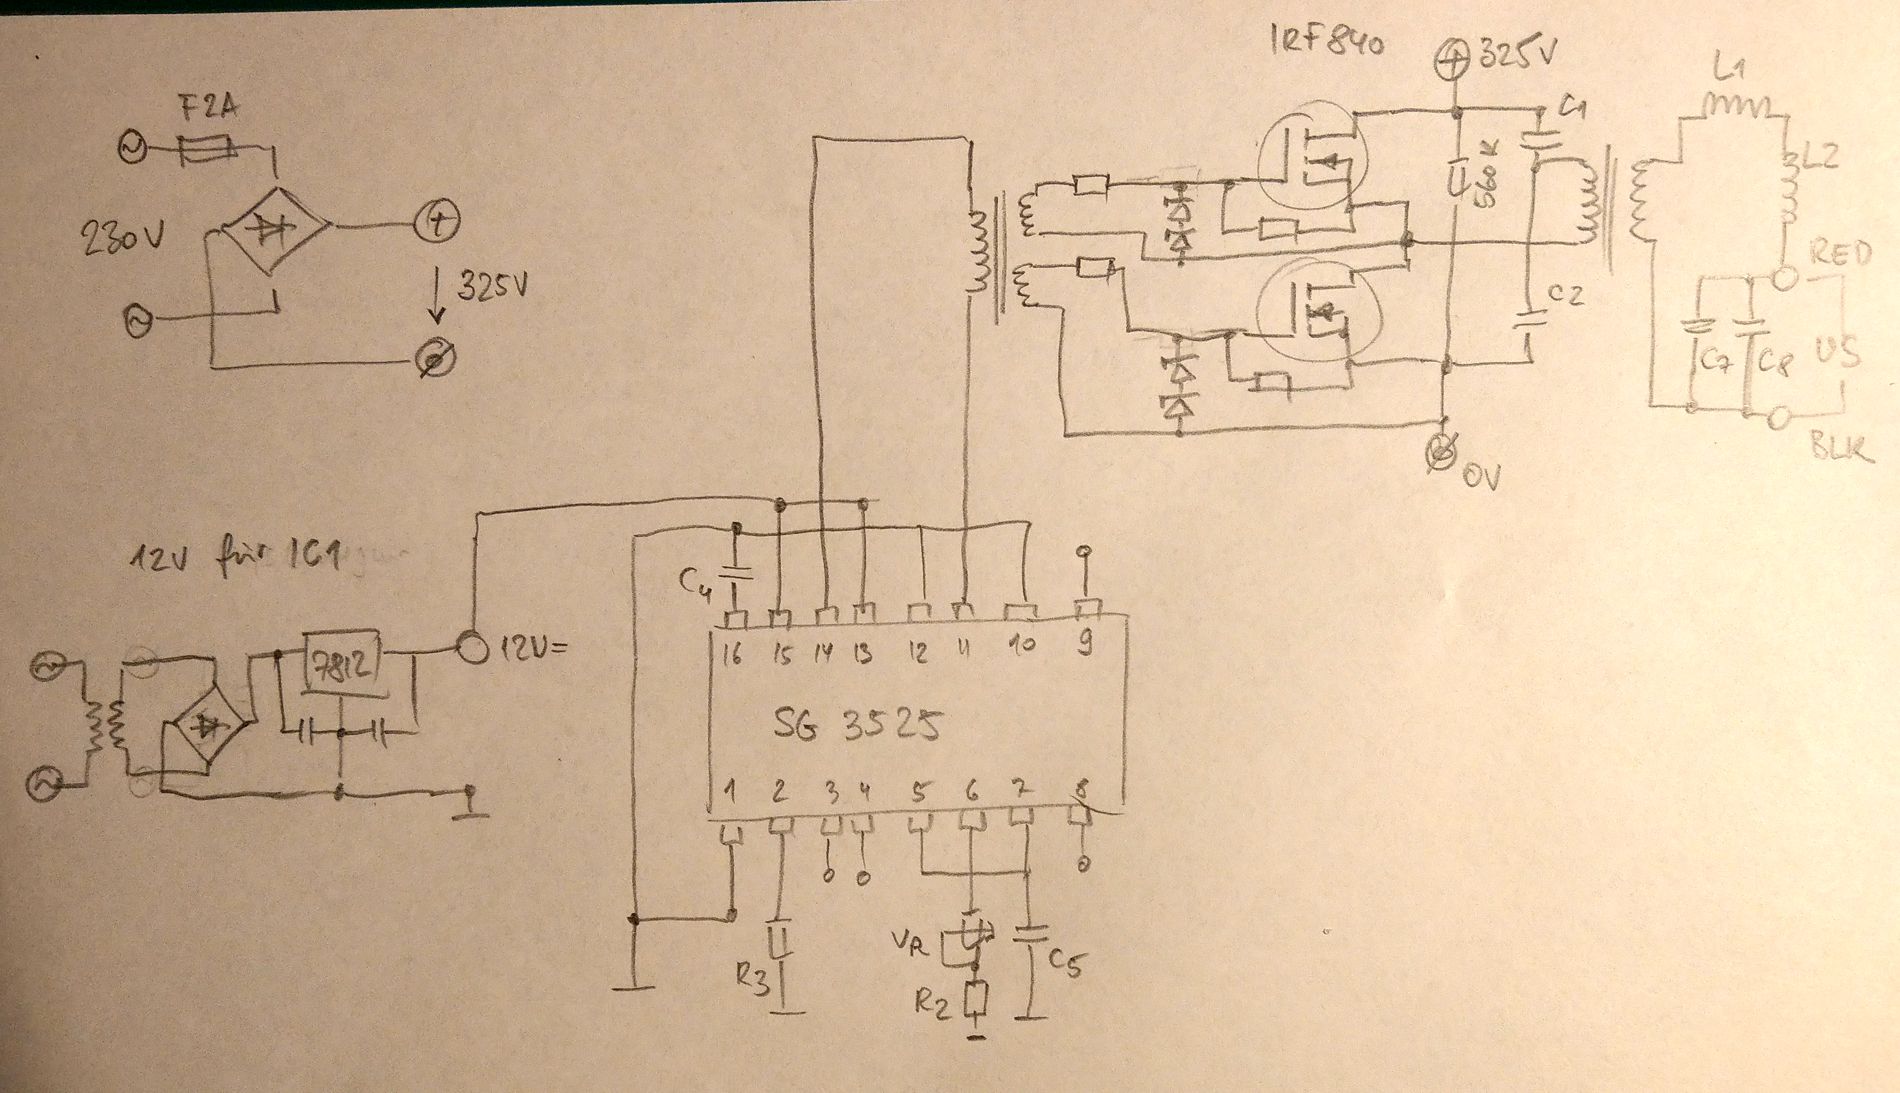 F2A
230V
325V
12V für IC1
7812
12V=
IRF840
325V
560K
C1
C2
0V
L1
L2
RED
C7
C8
US
BLK
C4
16 15 14 13 12 11 10 9
SG 3525
1 2 3 4 5 6 7 8
R3
VR
R2
C5